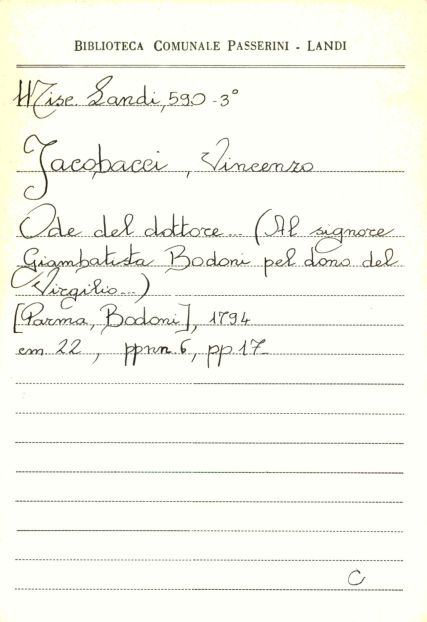 BIBLIOTECA COMUNALE PASSERINI - LANDI
Misc. Landi, 590 - 3°
Jacobacci, Vincenzo
Ode del dottore... (Al signore
Giambatista Bodoni pel dono del
Virgilio...)
[Parma, Bodoni], 1794
cm. 22, ppnn. 6, pp. 17
C